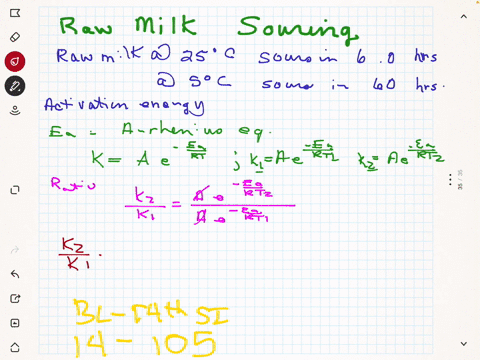 Raw Milk Souring
Raw milk @ 25°C sours in 6.0 hrs
@ 5°C sours in 60 hrs.
Activation energy
Ea - Arrhenius eq.
K = A e^-Ea/RT ; k1 = A e^-Ea/RT1 k2 = A e^-Ea/RT2
Ratio
k2/k1 = A e^-Ea/RT2 / A e^-Ea/RT1
K2/K1
BL-14th SI
14 - 105